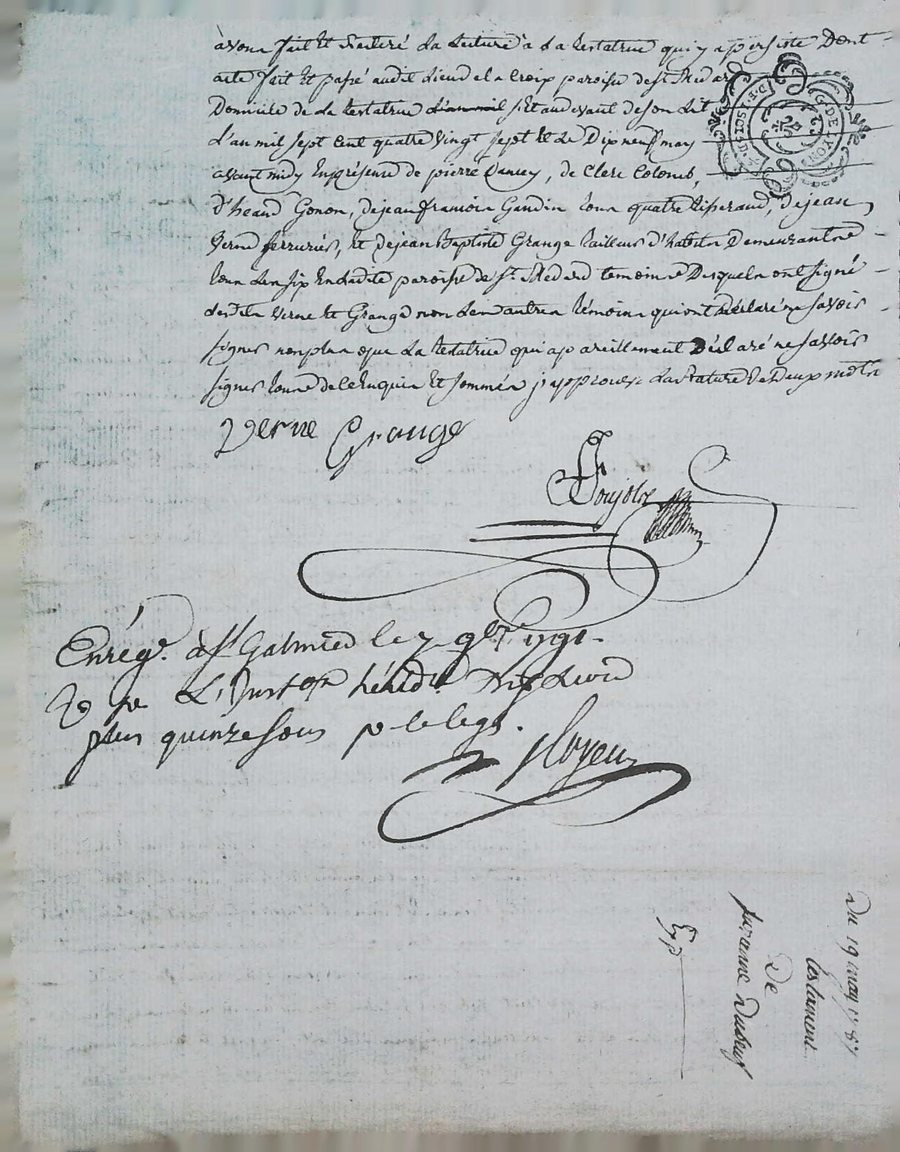 avons fait et réiteré la lecture à la testatrice qui y a persisté Dont
acte fait et passé audit lieu de la Croix paroisse de st Médard
Domicile de la testatrice d'an mil et au devant de son lit
L'an mil sept cent quatre vingt sept et le Dix neuf may
avant midy En présence de pierre, de Clere Colomb,
Gonon, de jean françois Gaudin tous quatre tisserand, de jean
Verne serrurier, et de jean Baptiste Grange tailleur d'habits Demeurant
tous les six En ladite paroisse de St. Médard temoins Desquels ont signé
Verne et Grange non les autres témoins qui ont Déclaré ne savoir
signer non plus que la testatrice qui a pareillement Déclaré ne savoir
signer de ce Enquis et sommés j'approuve la rature de deux mots
Verne Grange
Enrég. à St Galmier le 7 9bre 1791.
plus quinze sous p le legs.
G. DE LYON
Du 19 may 1787
testament
De
suzanne
Exp